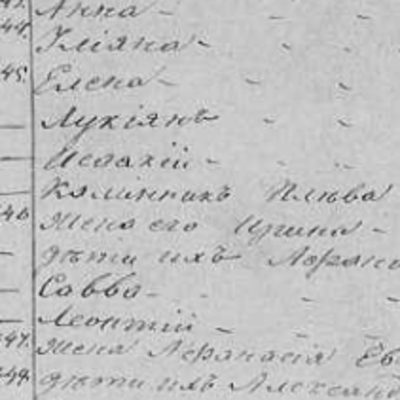 Анна -
44. Уліяна -
45. Елена -
Лукіянъ -
Исаакій -
Калінникъ Плева
46 Жена его Ирина -
дѣти ихъ Афана
Савва -
Леонтій -
47. Жена Афанасія Ев
48. дѣти ихъ Александ